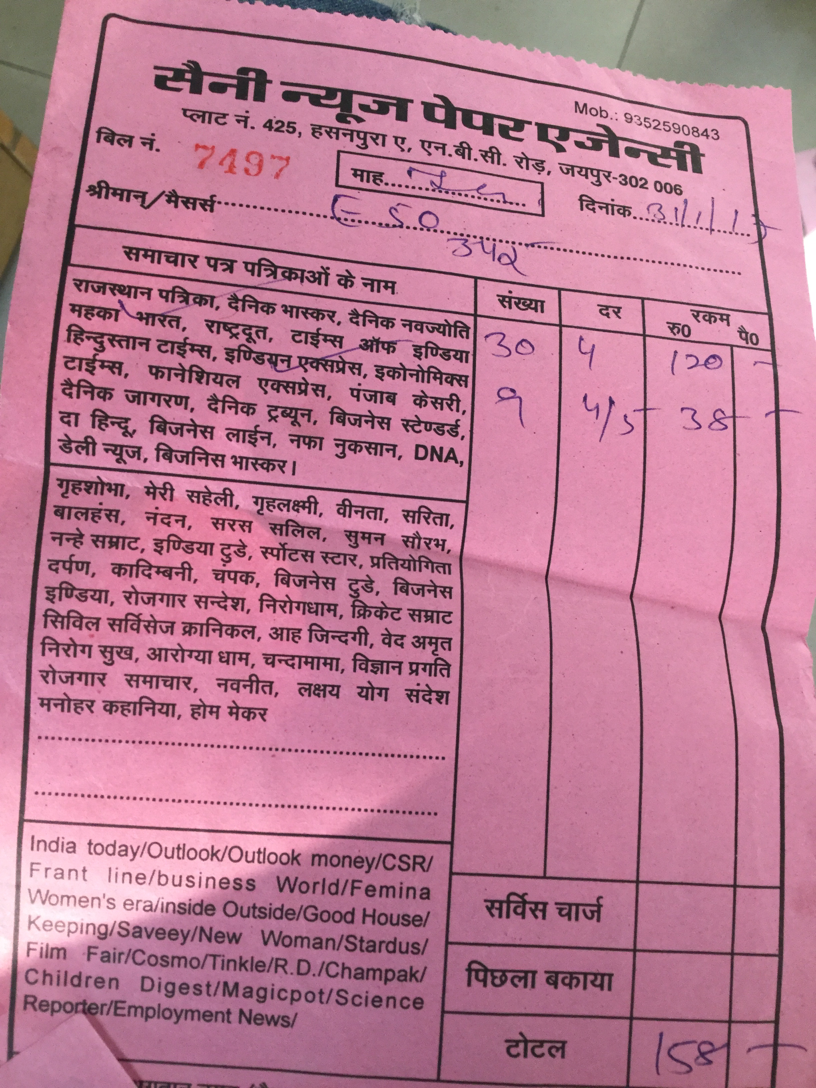 Mob.: 9352590843
सैनी न्यूज पेपर एजेन्सी
प्लाट नं. 425, हसनपुरा ए, एन.बी.सी. रोड़, जयपुर-302 006
बिल नं. 7497
माह..........
दिनांक...31/1/
श्रीमान्/मैसर्स.......... E-50
342
समाचार पत्र पत्रिकाओं के नाम संख्या दर रकम
रु0 पै0
राजस्थान पत्रिका, दैनिक भास्कर, दैनिक नवज्योति
महका भारत, राष्ट्रदूत, टाईम्स ऑफ इण्डिया
हिन्दुस्तान टाईम्स, इण्डियन एक्सप्रेस, इकोनोमिक्स
टाईम्स, फानेशियल एक्सप्रेस, पंजाब केसरी,
दैनिक जागरण, दैनिक ट्रब्यून, बिजनेस स्टेण्डर्ड,
दा हिन्दू, बिजनेस लाईन, नफा नुकसान, DNA,
डेली न्यूज, बिजनिस भास्कर।
30 4 120 -
9 4/5 38 -
गृहशोभा, मेरी सहेली, गृहलक्ष्मी, वीनता, सरिता,
बालहंस, नंदन, सरस सलिल, सुमन सौरभ,
नन्हे सम्राट, इण्डिया टुडे, र्स्पोटस स्टार, प्रतियोगिता
दर्पण, कादिम्बनी, चंपक, बिजनेस टुडे, बिजनेस
इण्डिया, रोजगार सन्देश, निरोगधाम, क्रिकेट सम्राट
सिविल सर्विसेज क्रानिकल, आह जिन्दगी, वेद अमृत
निरोग सुख, आरोग्या धाम, चन्दामामा, विज्ञान प्रगति
रोजगार समाचार, नवनीत, लक्षय योग संदेश
मनोहर कहानिया, होम मेकर
India today/Outlook/Outlook money/CSR/
Frant line/business World/Femina
Women's era/inside Outside/Good House/
Keeping/Saveey/New Woman/Stardus/
Film Fair/Cosmo/Tinkle/R.D./Champak/
Children Digest/Magicpot/Science
Reporter/Employment News/
सर्विस चार्ज
पिछला बकाया
टोटल 158 -